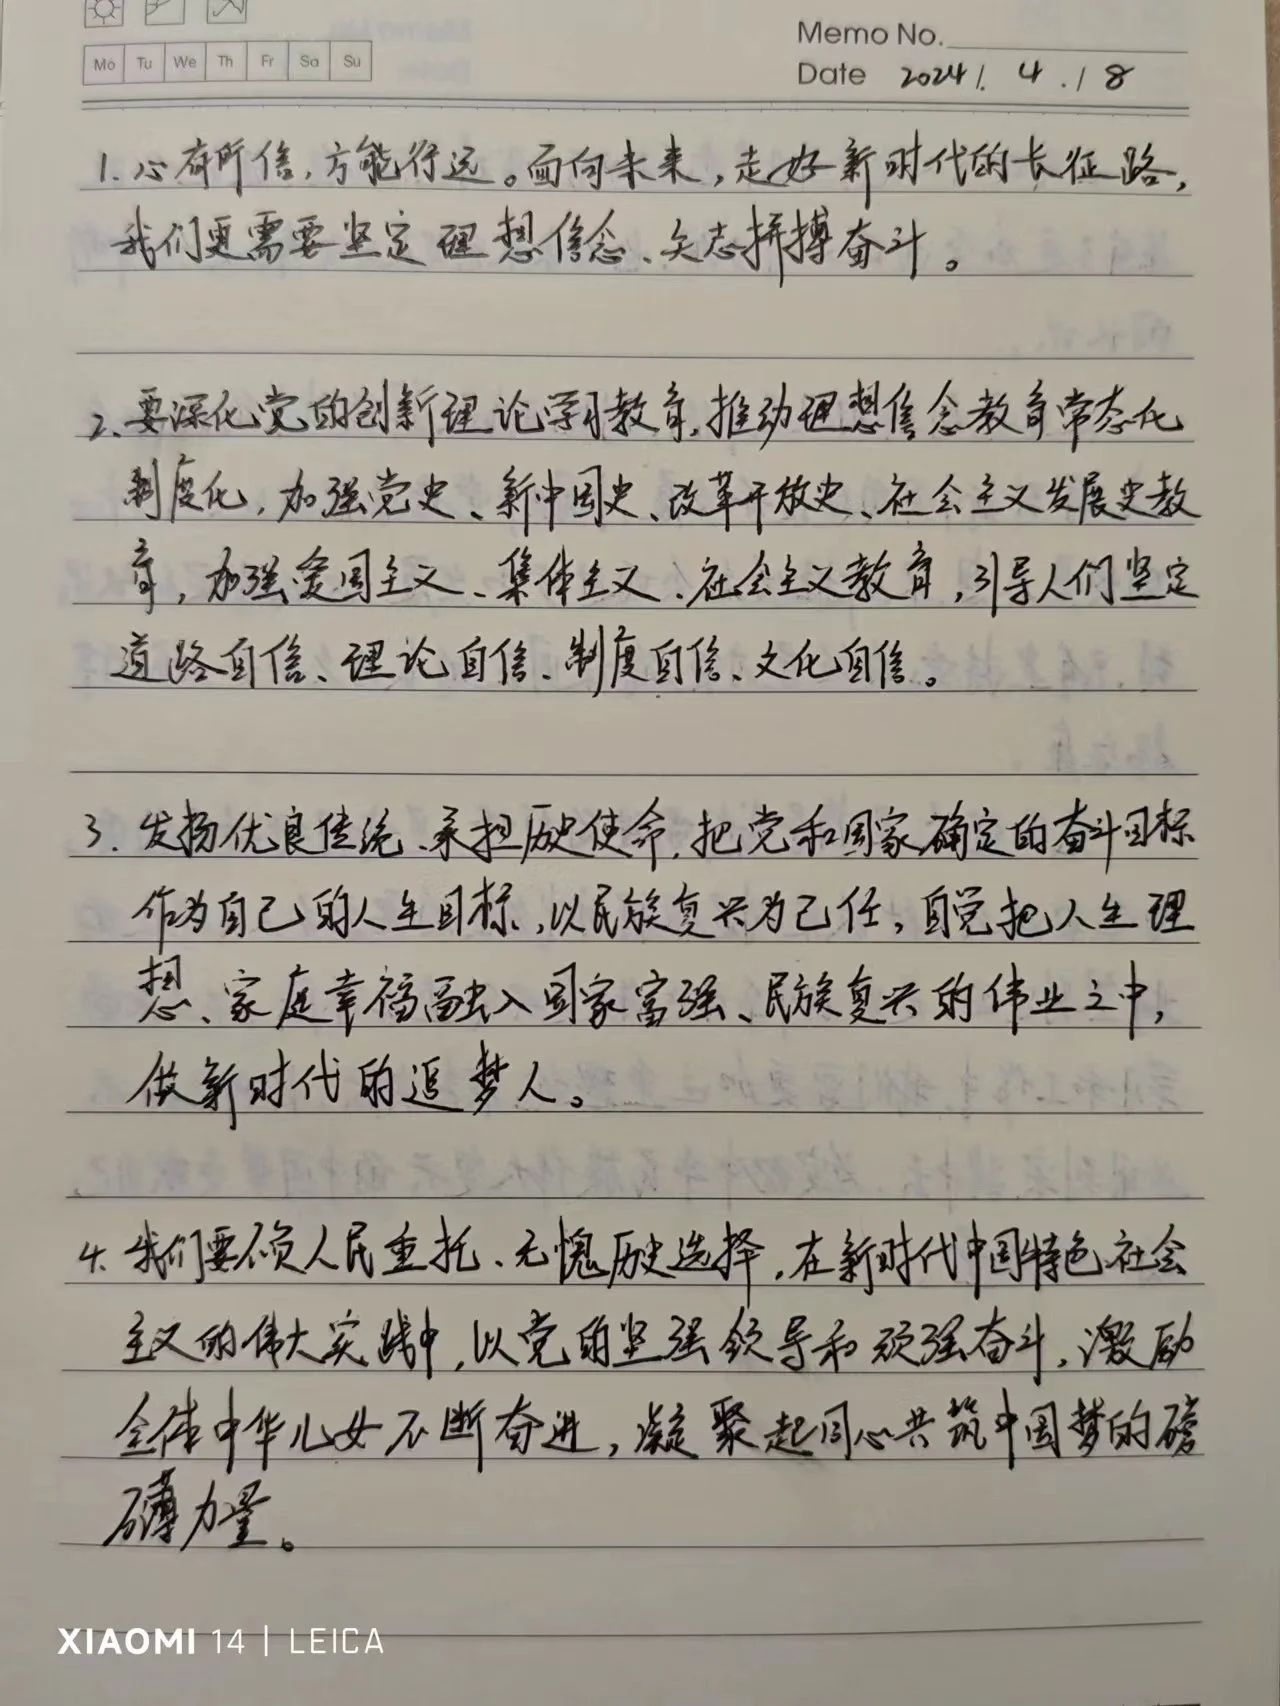 Mo Tu We Th Fr Sa Su
Memo No.
Date 2024.4.18
1. 心有所信,方能行远。面向未来,走好新时代的长征路,
我们更需要坚定理想信念、矢志拼搏奋斗。
2、要深化党的创新理论学习教育,推动理想信念教育常态化
制度化,加强党史、新中国史、改革开放史、社会主义发展史教
育,加强爱国主义、集体主义、社会主义教育,引导人们坚定
道路自信、理论自信、制度自信、文化自信。
3. 发扬优良传统、承担历史使命,把党和国家确定的奋斗目标
作为自己的人生目标,以民族复兴为己任,自觉把人生理
想、家庭幸福融入国家富强、民族复兴的伟业之中,
做新时代的追梦人。
4. 我们要不负人民重托、无愧历史选择,在新时代中国特色社会
主义的伟大实践中,以党的坚强领导和顽强奋斗,激励
全体中华儿女不断奋进,凝聚起同心共筑中国梦的磅
礴力量。
XIAOMI 14 | LEICA